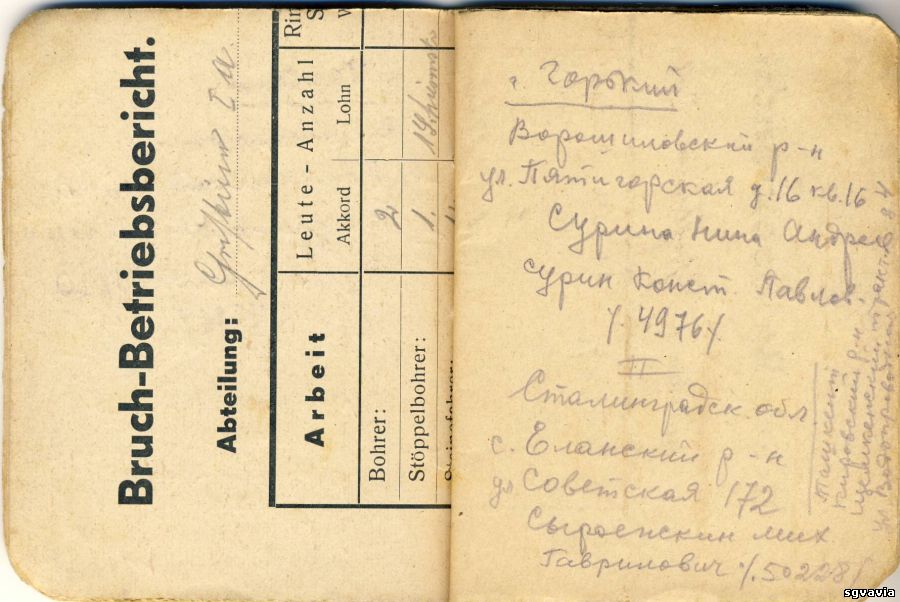 Bruch-Betriebsbericht.
Abteilung:
Arbeit
Leute-Anzahl
Akkord
Lohn
Bohrer:
2
Stöppelbohrer:
1
г. Горький
Ворошиловский р-н
ул. Пятигорская д.16 кв.16
Сурина Нина Андрее
Сурин Конст. Павлов.
/. 4976/.
II
Сталинградск. обл
с. Еланский р-н
ул Советская 172
Сыроежкин мих
Гаврилович /. 50228/
Ташкент
Кировский р-н
ул. Водопроводная
sgvavia